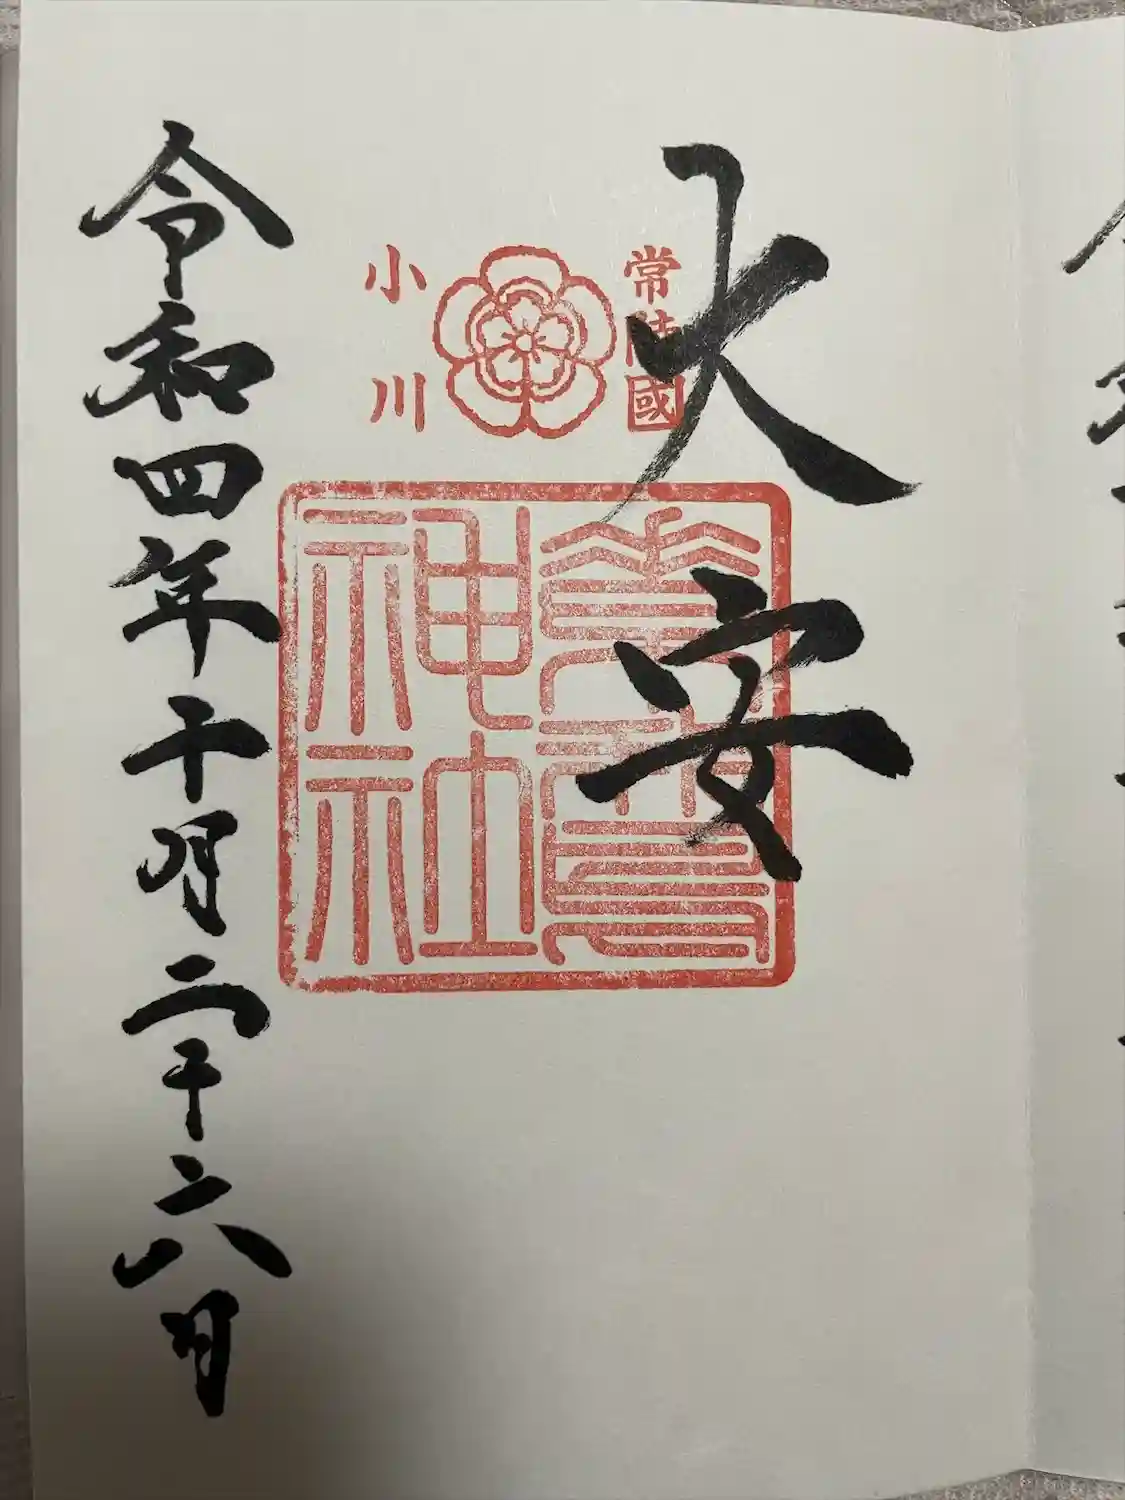 大安
常陸國
小川
素鵞神社
令和四年十月二十六日